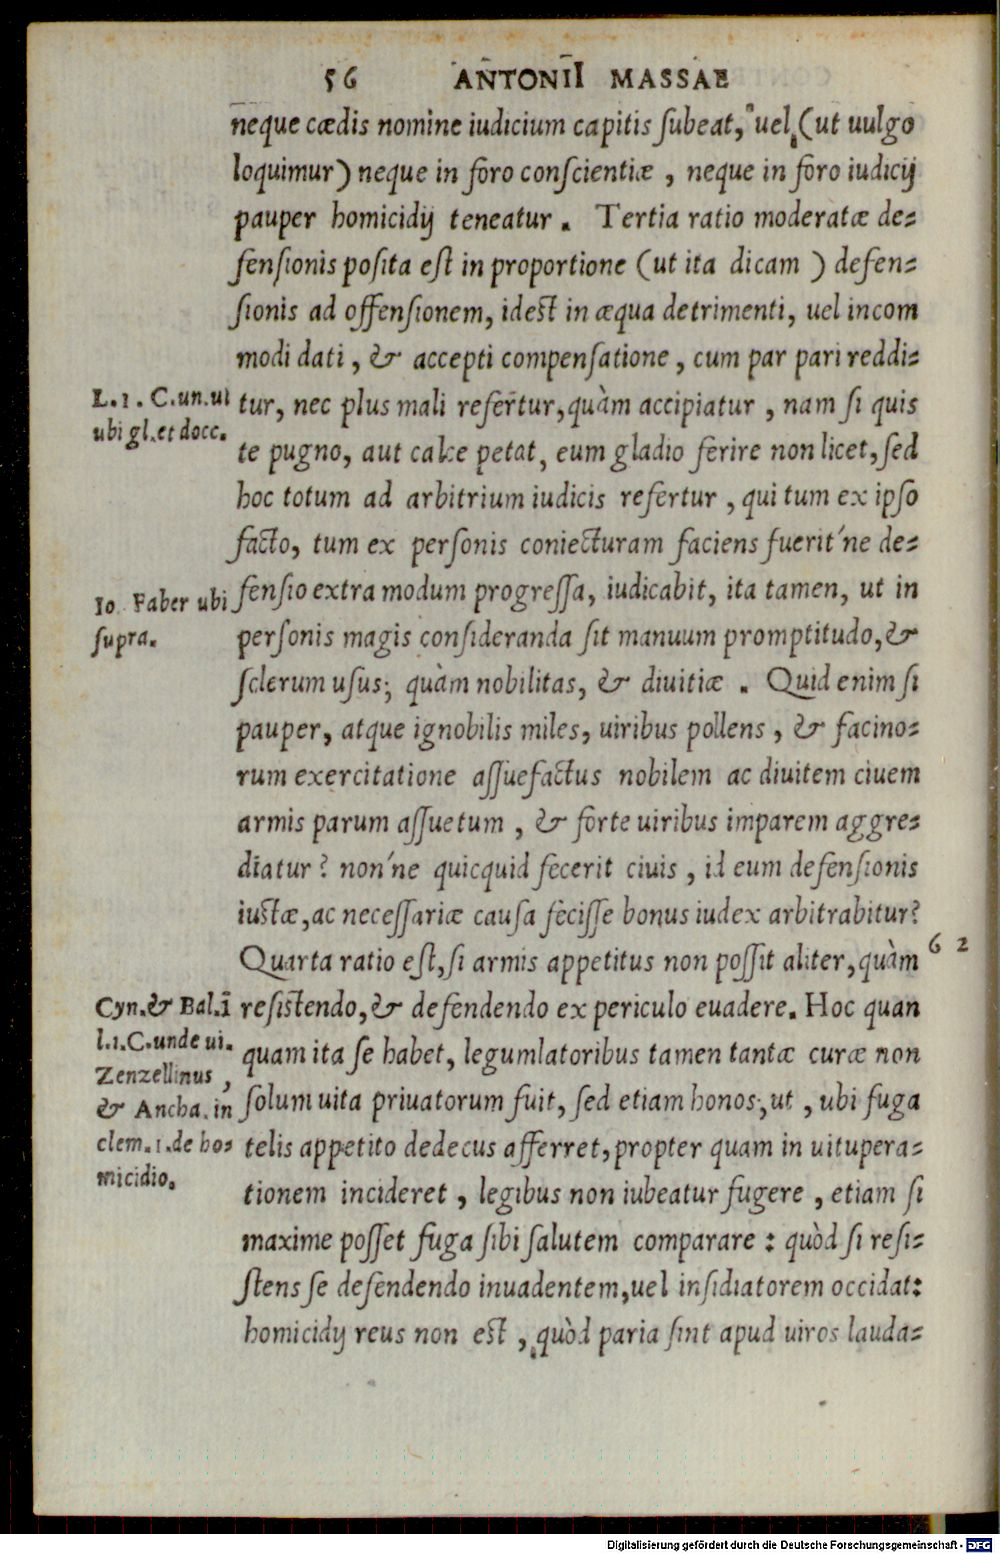 56 ANTONII MASSAE
neque cædis nomine iudicium capitis ſubeat, uel (ut uulgo
loquimur) neque in foro conſcientiæ, neque in foro iudicij
pauper homicidij teneatur. Tertia ratio moderatæ de=
fenſionis poſita eſt in proportione (ut ita dicam) defen=
ſionis ad offenſionem, ideſt in æqua detrimenti, uel incom
modi dati, & accepti compenſatione, cum par pari reddi=
L.1. C.un.ui
ubi gl.et docc.
tur, nec plus mali refertur, quàm accipiatur, nam ſi quis
te pugno, aut calce petat, eum gladio ferire non licet, ſed
hoc totum ad arbitrium iudicis refertur, qui tum ex ipſo
facto, tum ex perſonis coniecturam faciens fuerit'ne de=
Io. Faber ubi
ſupra.
fenſio extra modum progreſſa, iudicabit, ita tamen, ut in
perſonis magis conſideranda ſit manuum promptitudo, &
ſclerum uſus; quàm nobilitas, & diuitiæ. Quid enim ſi
pauper, atque ignobilis miles, uiribus pollens, & facino=
rum exercitatione aſſuefactus nobilem ac diuitem ciuem
armis parum aſſuetum, & forte uiribus imparem aggre=
diatur? non'ne quicquid fecerit ciuis, id eum defenſionis
iuſtæ, ac neceſſariæ cauſa feciſſe bonus iudex arbitrabitur?
Quarta ratio eſt, ſi armis appetitus non poſſit aliter, quàm
62
Cyn.& Bal.ī
l.1.C.unde ui.
Zenzellinus,
& Ancha. in
clem.1.de ho=
micidio.
reſiſtendo, & defendendo ex periculo euadere. Hoc quan
quam ita ſe habet, legumlatoribus tamen tantæ curæ non
ſolum uita priuatorum fuit, ſed etiam honos;, ut, ubi fuga
telis appetito dedecus afferret, propter quam in uitupera=
tionem incideret, legibus non iubeatur fugere, etiam ſi
maxime poſſet fuga ſibi ſalutem comparare: quòd ſi reſi=
ſtens ſe defendendo inuadentem, uel inſidiatorem occidat:
homicidij reus non eſt, quòd paria ſint apud uiros lauda=
Digitalisierung gefördert durch die Deutsche Forschungsgemeinschaft - DFG